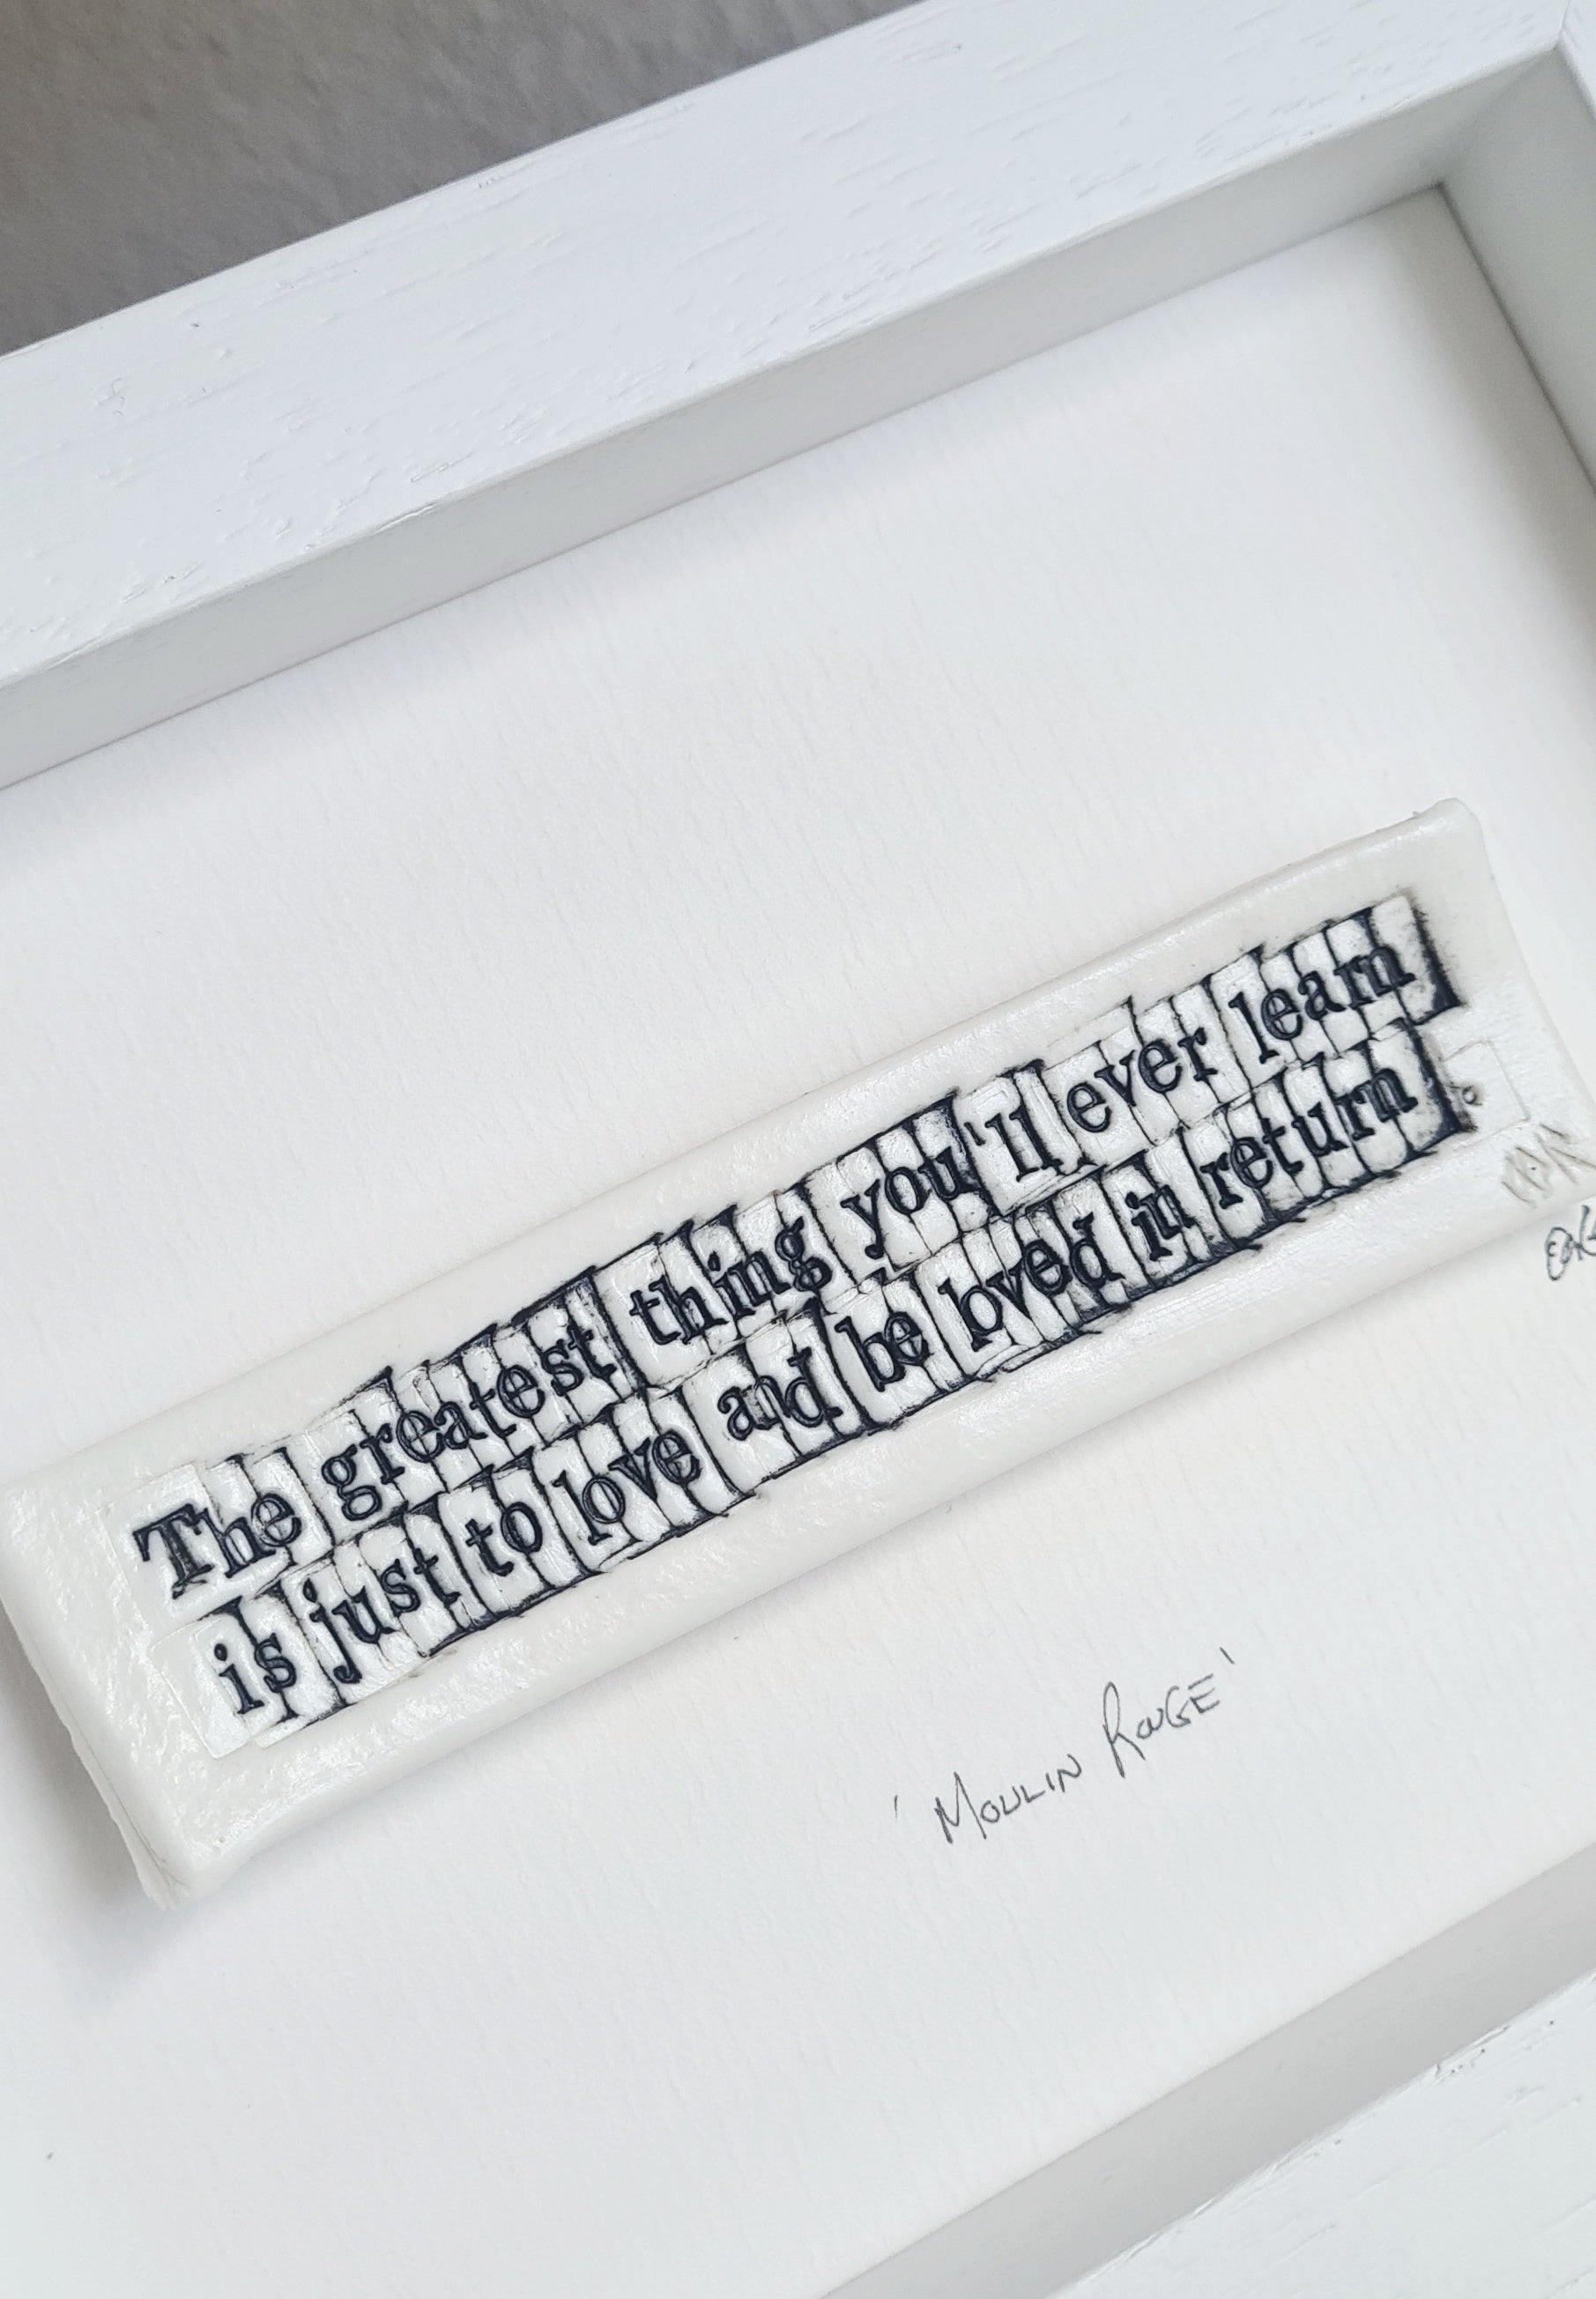 The greatest thing you'll ever learn
is just to love and be loved in return.
'Moulin Rouge'